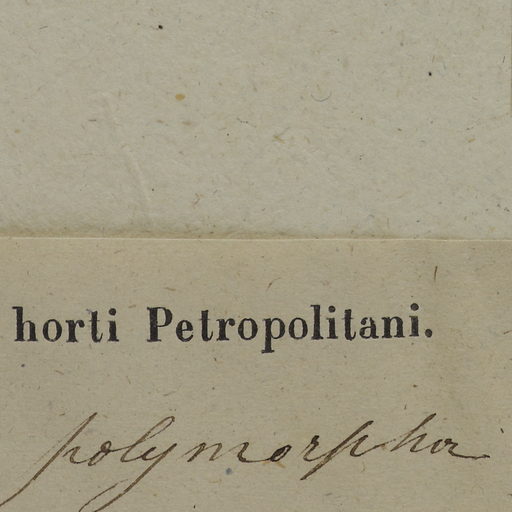 horti Petropolitani.
polymorpha